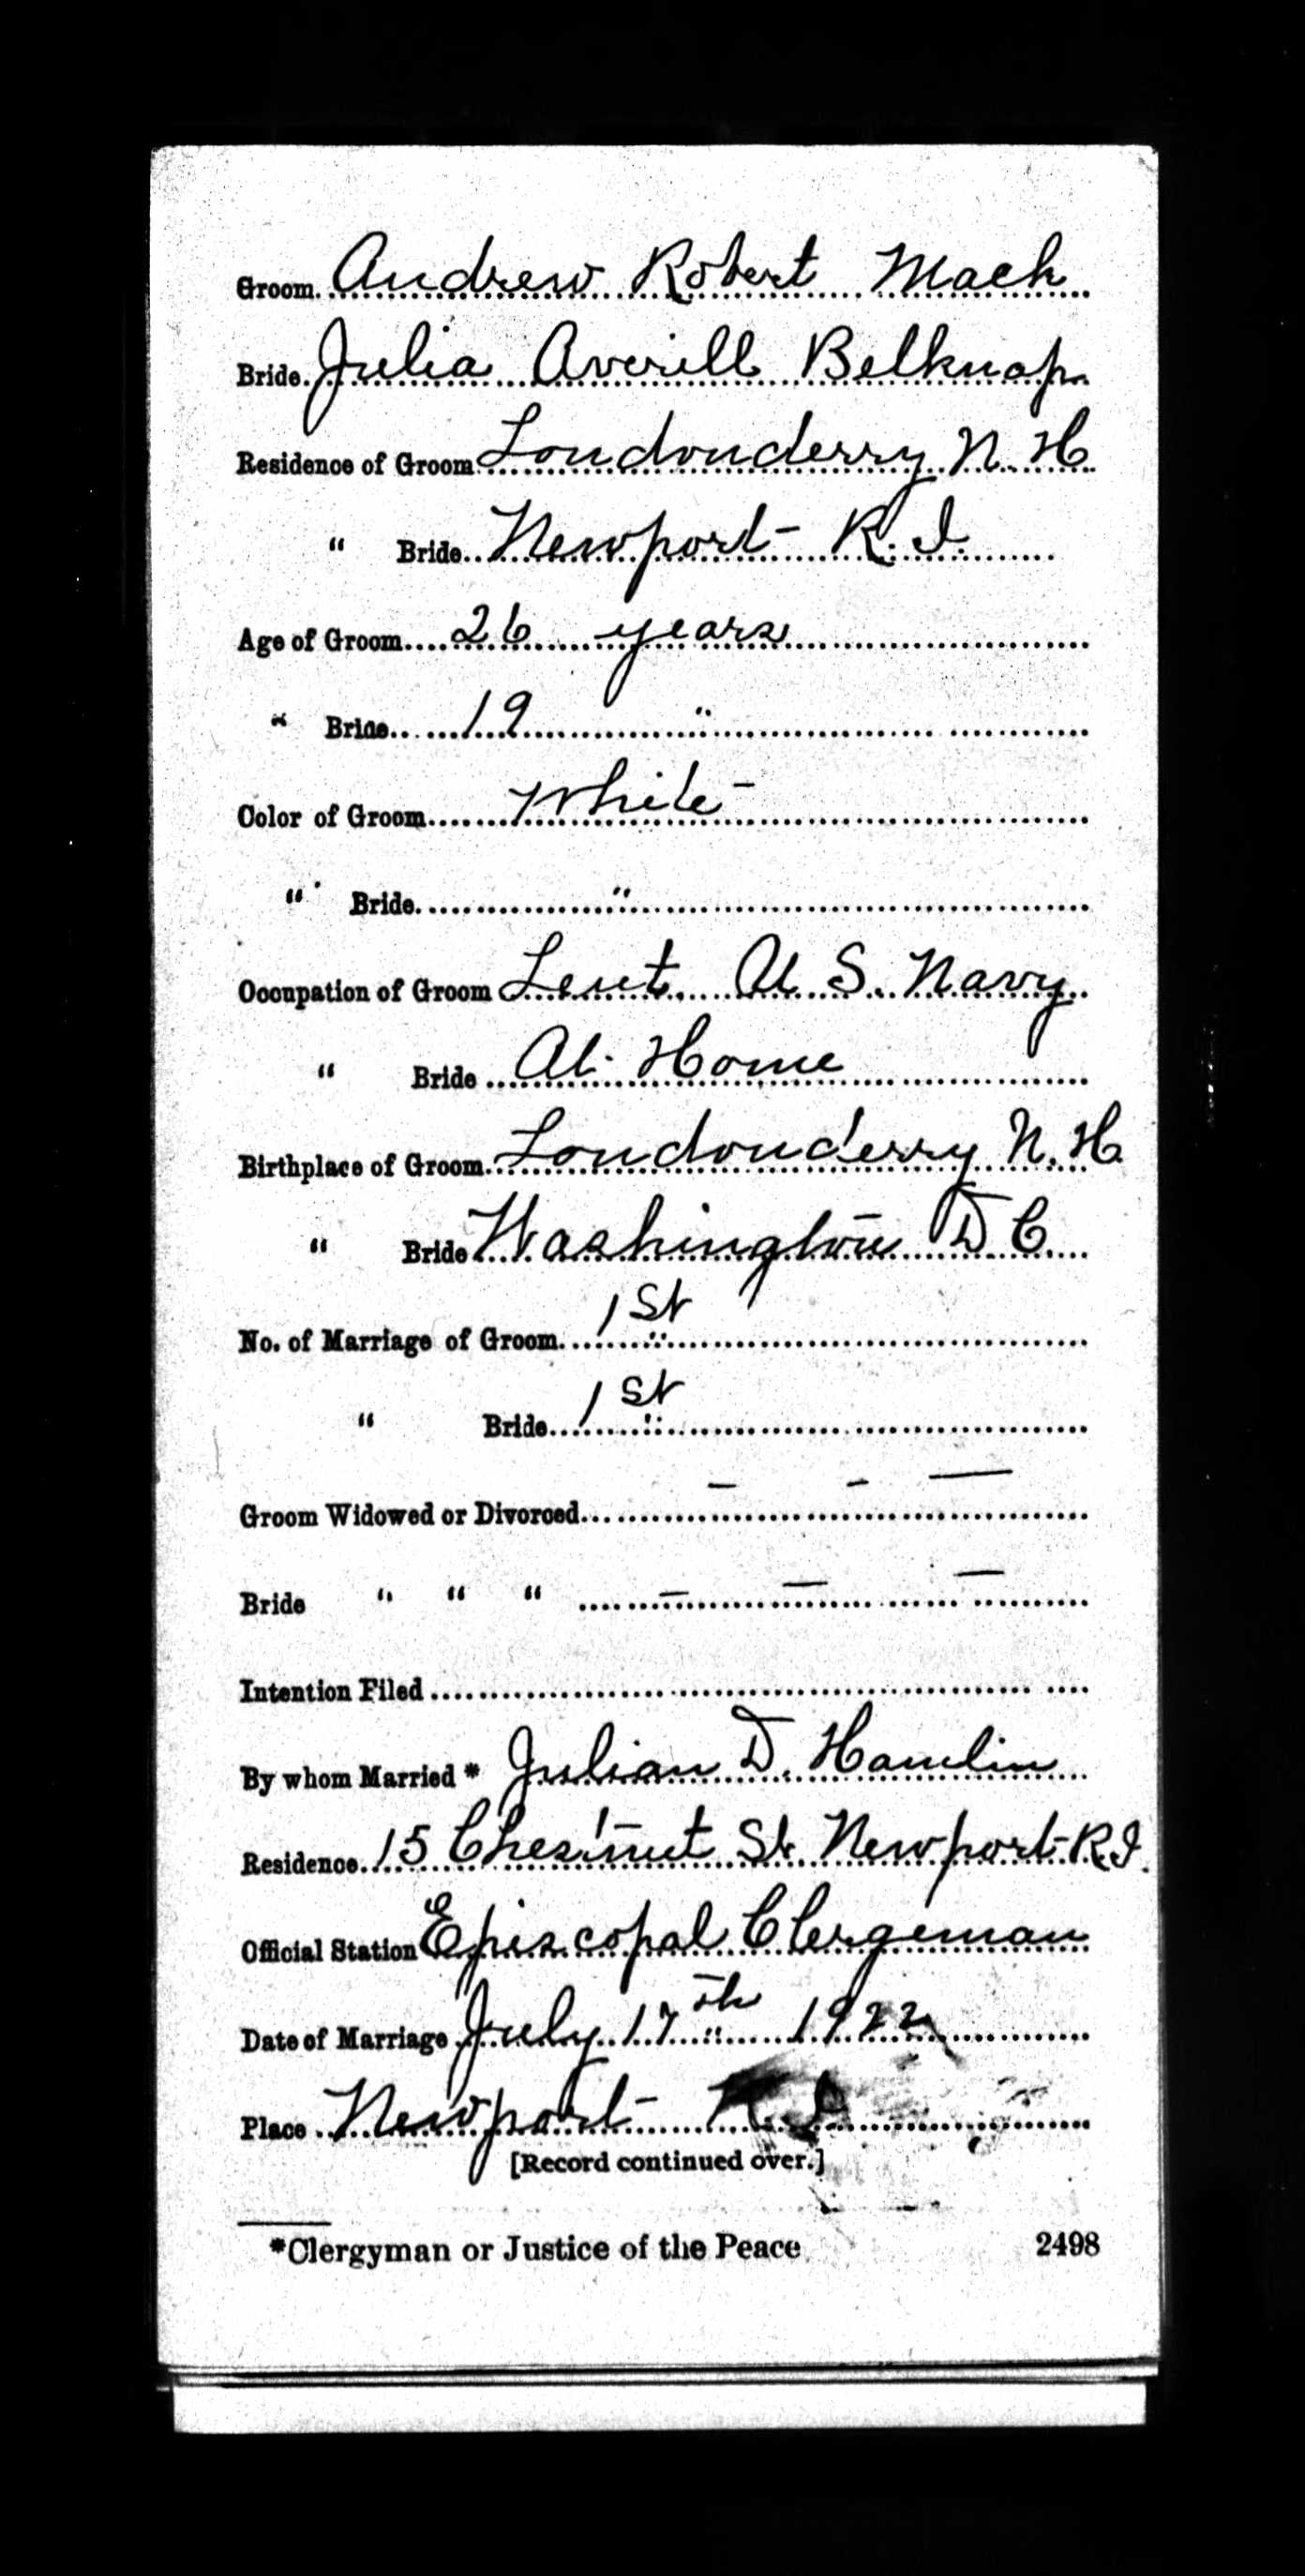 Groom. Andrew Robert Mack
Bride. Julia Averill Belknap
Residence of Groom Londonderry N. H
" Bride. Newport R. I.
Age of Groom. 26 years
" Bride. 19 "
Color of Groom. White
" Bride. "
Occupation of Groom Leut. U S. Navy
" Bride At Home
Birthplace of Groom. Londonderry N. H
" Bride Washington D C.
No. of Marriage of Groom. 1st
" Bride. 1st
Groom Widowed or Divorced. — — —
Bride " " " — — —
Intention Filed
By whom Married * Julian D. Hamlin
Residence. 15 Chestnut St. Newport R.I.
Official Station Episcopal Clergeman
Date of Marriage July 17th 1922
Place Newport R. I
[Record continued over.]
*Clergyman or Justice of the Peace 2498